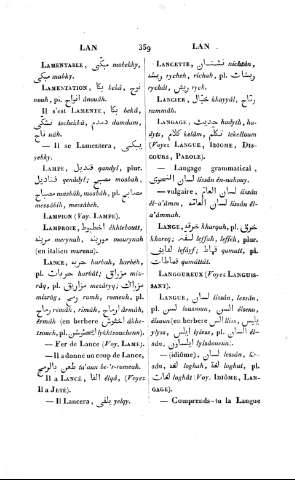 LAN 359 LAN
LAMENTABLE, مبكى mabekhy,
مبكى mabky.
LAMENTATION, بكا bekâ, نوح
nouh, pl. انواح ânouâh.
Il s'est LAMENTÉ, بكا bekâ,
تشكى techekkâ, دمدم damdam,
ناح nâh.
— Il se Lamentera, يبكى
yebky.
LAMPE, قنديل qandyl, plur.
قناديل qenâdyl; مصباح mesbah,
مصباح masbâh, mosbah, pl. مصابح
messâbih, mesabeh.
LAMPION (Voy. LAMPE).
LAMPROIE, اخطبوط êkhtebouth,
مورينه mourynah, مورينة mourynah
(en italien murena).
LANCE, حربة harbah, harbeh,
pl. حربات harbât; مزراق miz-
râq, pl. مزاريق mezâryq; مزراك
mizrâg, رمح ramh, roumh, pl.
رماح rimâh, ارماح ârmâh, ارماح
êrmâh (en berbère اختوش âkh-
— Fer de Lance (Voy. LAME).
— Il a donné un coup de Lance,
طعن بالرمح ta'an be-'r-roumeh.
Il a LANCÉ, القا êlqâ, (Voyez
IL A JETÉ).
— Il Lancera, يلقى yelqy.
LANCETTE, نشتان nichtân,
ريشة rycheh, richah, pl. ريشات
rychât, ريش rych.
LANCIER, خيال khayyâl, رماح
rammâh.
LANGAGE, حديث hadyth, ha-
dyts, كلام kelâm, تكلم tekelloum
(Voyez LANGUE, IDIOME, DIS-
COURS, PAROLE).
— Langage grammatical,
لسان النحوى lissân ên-nahouy.
— vulgaire, لسان العام lissân
êl-a'âmm, لسان العامة lissân êl-
a'âmmah.
LANGE, خرقة kharqah, pl. خرق
kharaq; لفة leffah, leffeh, plur.
لفايف lefâyf; قماط qamatt, pl.
قماطات qamâttât.
LANGOUREUX (Voyez LANGUIS-
SANT).
LANGUE, لسان lissân, lessân,
pl. السن lousoun, السنة êlsenu,
êlsoun (en berbère يلس îlis, يلس
pl. السان êl-
sân, ايلسون îylsâouen).
— (idiôme), لسان lessân, lis-
sân, لغة loghah, loghat, pl.
لغات loghât (Voy. IDIÔME, LAN-
GAGE).
— Comprends-tu la Langue